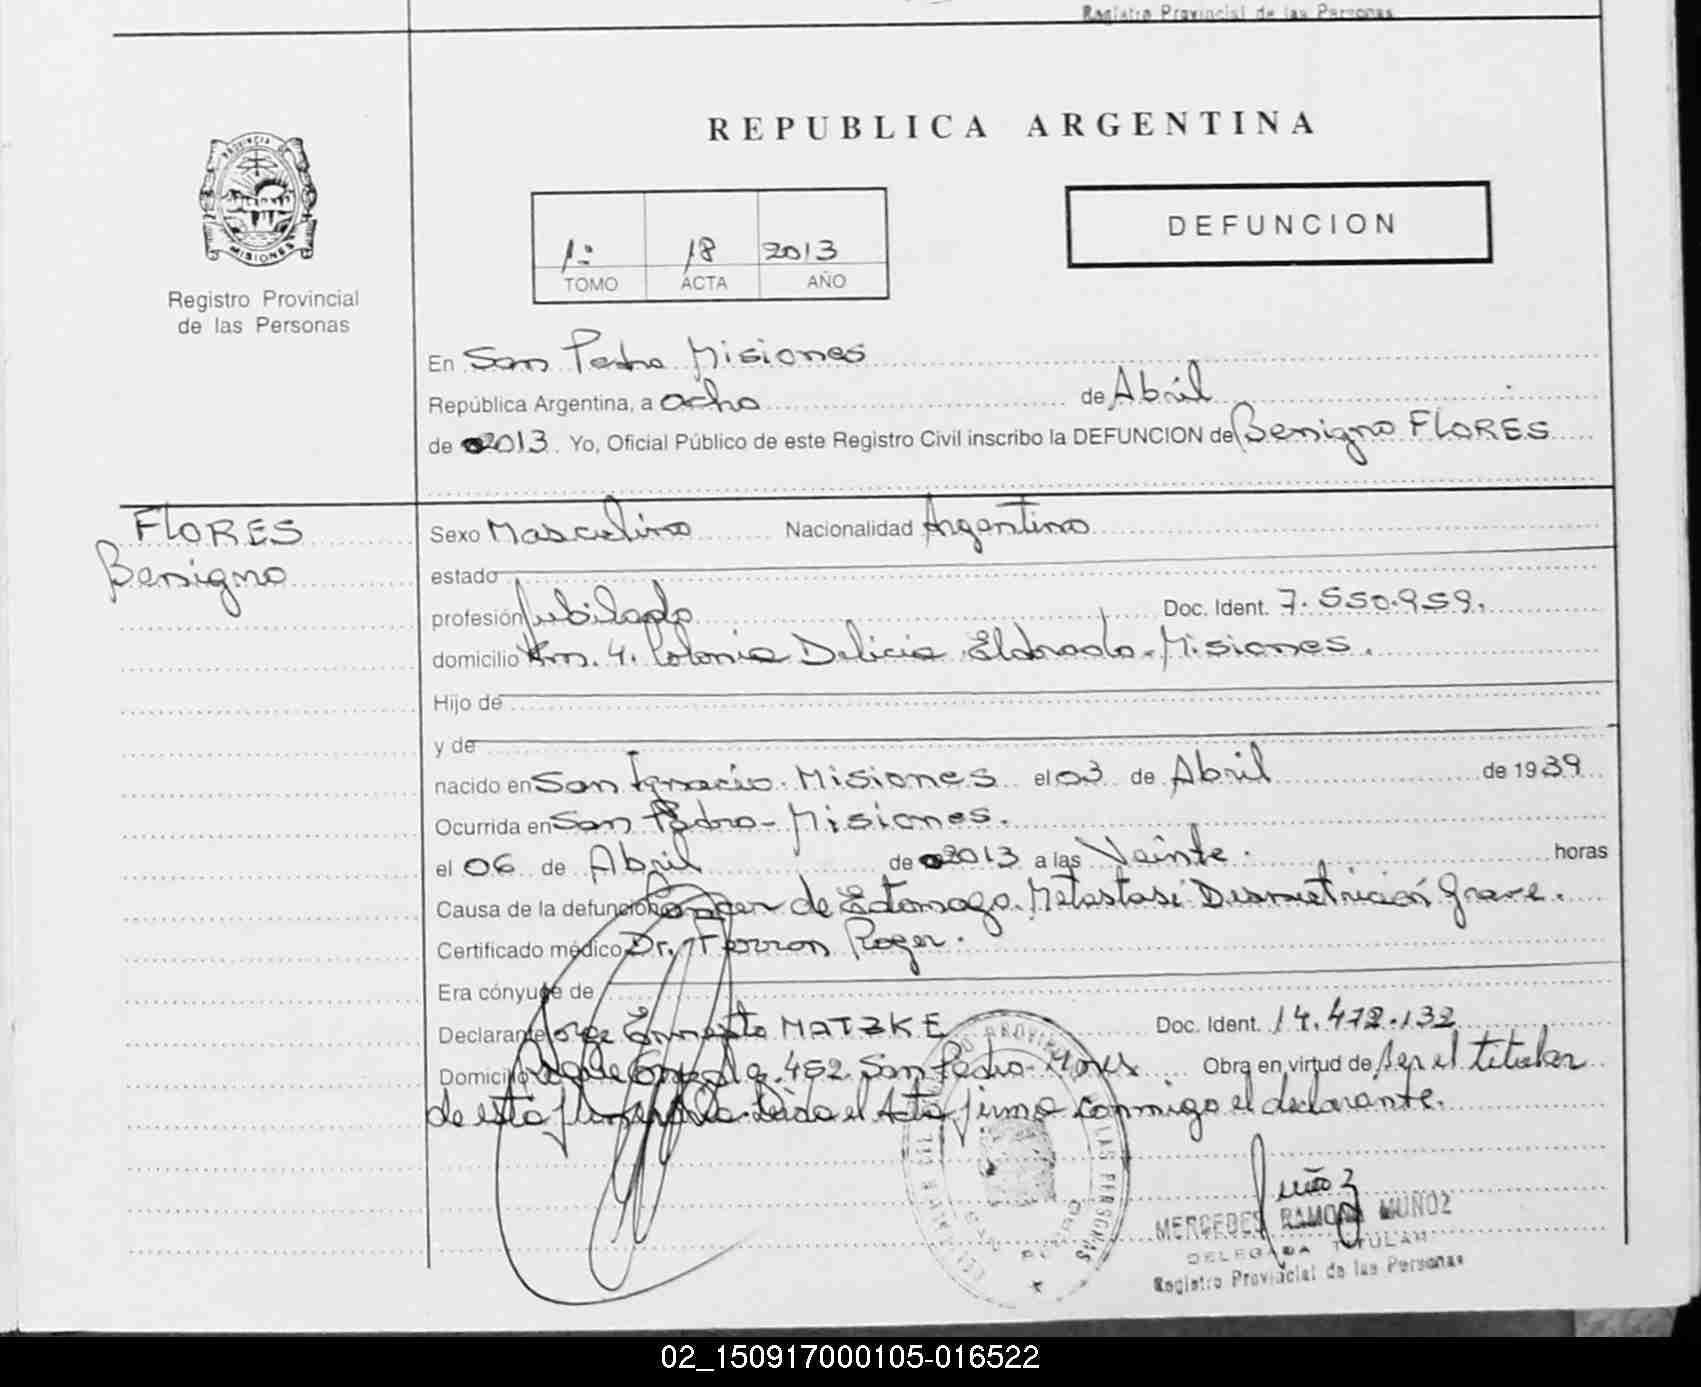 Registro Provincial de las Personas
REPUBLICA ARGENTINA
PROVINCIA DE
MISIONES
Registro Provincial
de las Personas
1:
18
2013
TOMO
ACTA
AÑO
DEFUNCION
En San Pedro Misiones
República Argentina, a ocho de Abril
de 2013 Yo, Oficial Público de este Registro Civil inscribo la DEFUNCION de Benigno FLORES
FLORES
Benigno
Sexo Masculino Nacionalidad Argentino
estado
profesión Jubilado Doc. Ident. 7.550.959.
domicilio Km. 4. Colonia Delicia Eldorado. Misiones.
Hijo de
y de
nacido en San Ignacio. Misiones el 03 de Abril de 1939
Ocurrida en San Pedro - Misiones.
el 06 de Abril de 2013 a las Veinte. horas
Causa de la defunción Cancer de Estomago. Metastasi Desnutrición grave.
Certificado médico Dr. Ferron Roger.
Era cónyuge de
Declarante Jorge Ernesto MATZKE Doc. Ident. 14.472.132
Domicilio 452 San Pedro - Mnes Obra en virtud de ser el titular
de esta funeraria. Leida el Acta firma conmigo el declarante.
LAS PERSONAS
SAN PEDRO
MERCEDES RAMONA MUÑOZ
DELEGADA TITULAR
Registro Provincial de las Personas
02_150917000105-016522